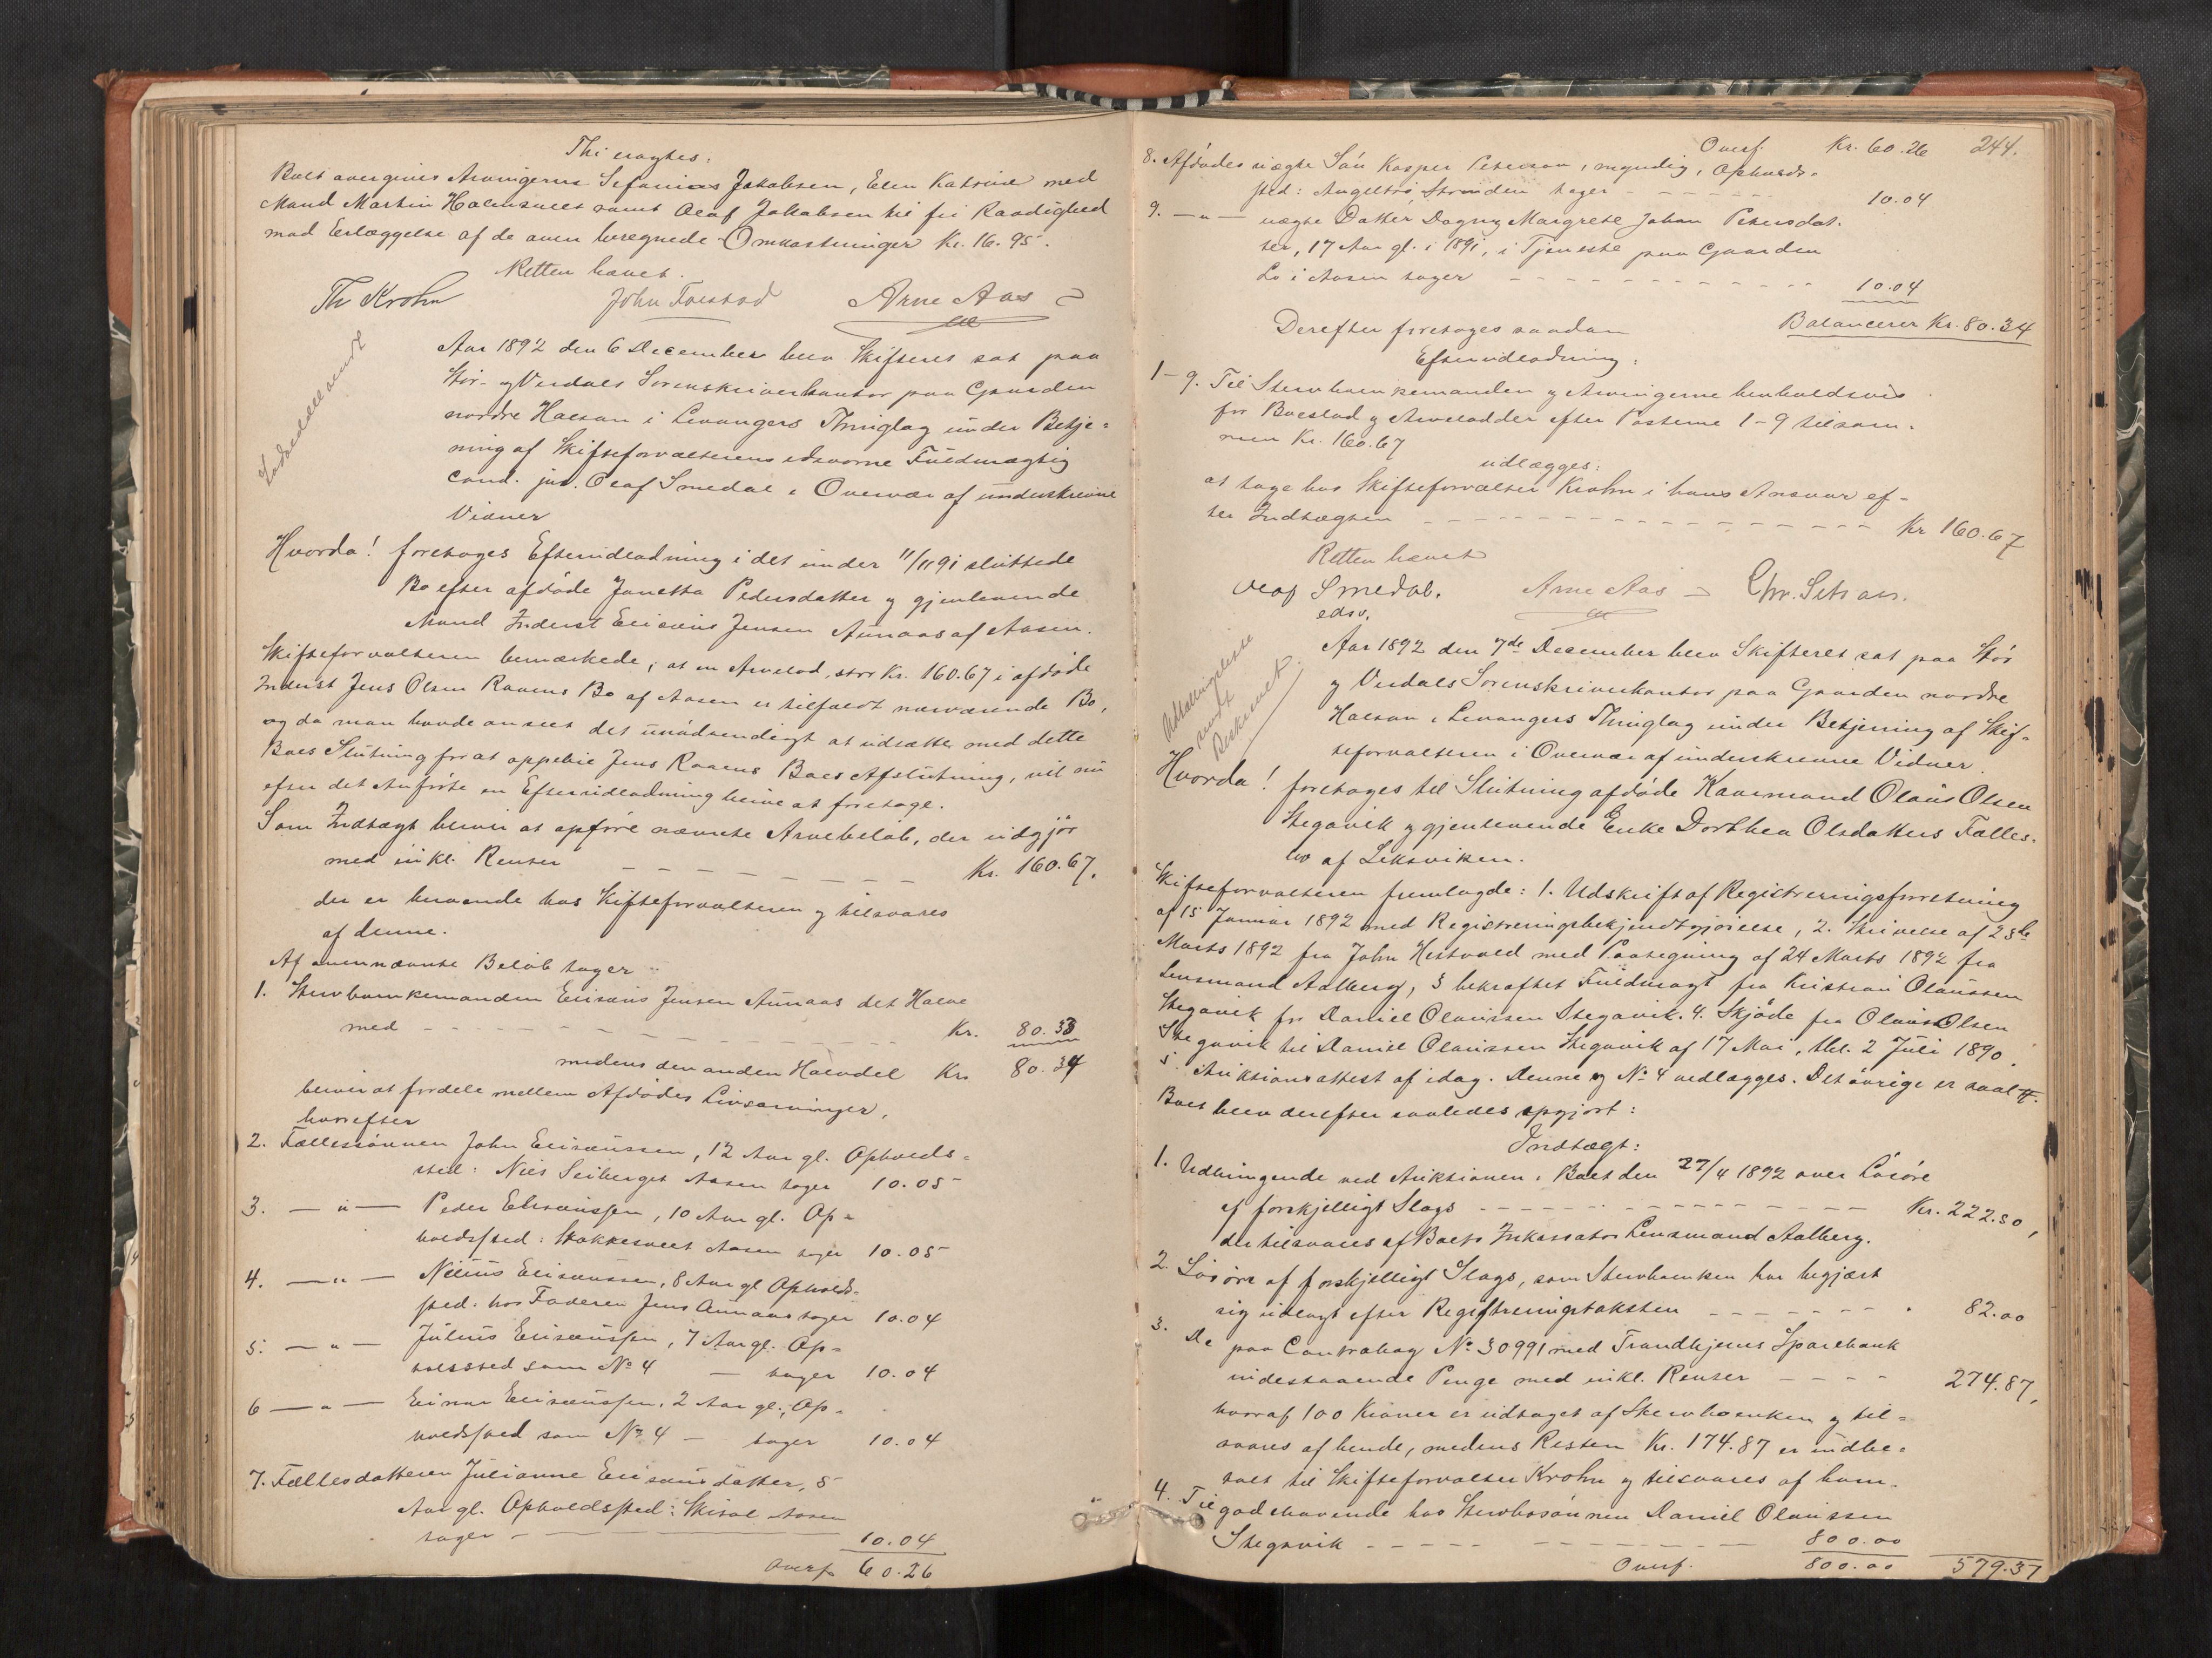 Thi eragtes:
Boet overgives Arvingerne Sefanias Jakobsen, Elen Katrine med
Mand Martin Halensveet samt Olaf Jakobsen til fri Raadighed
mod Erlæggelse af de oven beregnede Omkostninger Kr. 16.95.
Retten hævet.
Th Krohn John Farstad Arne Aas
Aar 1892 den 6 December blev Skifteret sat paa
Stør- og Verdals Sorenskriverkontor paa Gaarden
nordre Halsan i Levangers Thinglag under Betje-
ning af Skifteforvalterens edsvorne Fuldmægtig
cand. jur. Olaf Smedal i Overvær af underskrevne
Vidner
Hvorda! foretoges Efterudlodning i det under 11/11 91 sluttede
Bo efter afdøde Janetta Pedersdatter og gjenlevende
Mand Inderst Elisæus Jensen Aunaas af Aasen.
Skifteforvalteren bemærkede, at en Arvelod, stor Kr. 160.67 i afdøde
Inderst Jens Olsen Raaens Bo af Aasen er tilfaldt nærværende Bo,
og da man havde anseet det unødvendigt at udsætte med dette
Boes Slutning for at oppebie Jens Raaens Boes Afslutning, vil nu
efter det Anførte en Efterudlodning blive at foretage.
Som Indtægt bliver at opføre nævnte Arvebeløb, der udgjør
med inkl. Renter Kr. 160.67.
der er beroende hos Skifteforvalteren og tilsvares
af denne.
Af ovennævnte Beløb tager
1. Stervboenkemanden Elisæus Jensen Aunaas det Halve
med Kr. 80.33
medens den anden Halvdel Kr. 80.34
bliver at fordele mellem Afdødes Livsarvinger,
hvorefter
2. Fællessønnen John Elisæussen, 12 Aar gl. Opholds-
sted: Nils Seiberget Aasen tager 10.05
3. — " — Peder Elisæussen, 10 Aar gl. Op-
holdssted: Stokkesveet Aasen tager 10.05
4. — " — Nilius Elisæussen, 8 Aar gl Opholds-
sted: hos Faderen Jens Aunaas tager 10.04
5. — " — Julius Elisæussen, 7 Aar gl. Op-
holdssted som No 4 — tager 10.04
6 — " — Einar Elisæussen, 2 Aar gl., Op-
holdssted som No 4 — tager 10.04
7. Fællesdatteren Julianne Elisæusdatter, 5
Aar gl. Opholdssted: Skisal Aasen
tager 10.04
Overf. 60.26
Overf. Kr. 60.26 244.
8. Afdødes uægte Søn Kasper Peterson, myndig, Opholds-
sted: Angeltrø, Strinden tager 10.04
9. — " — uægte Datter Dagny Margrete Johan Petersdat-
ter, 17 Aar gl. i 1891, i Tjeneste paa Gaarden
Lo i Aasen tager 10.04
Balancerer Kr. 80.34
Derefter foretoges saadan
Efterudlodning:
1-9. Til Stervboenkemanden og Arvingerne henholdsvis
for Boeslod og Arvelodder efter Posterne 1-9 tilsam-
men Kr. 160.67
udlægges:
at tage hos Skifteforvalter Krohn i hans Ansvar ef-
ter Indtægten Kr 160.67
Retten hævet
Olaf Smedal. Arne Aas Chr. Setsaas.
edsv.
Aar 1892 den 7de December blev Skifteret sat paa Stør
og Verdals Sorenskriverkontor paa Gaarden nordre
Halsan i Levangers Thinglag under Betjening af Skif-
teforvalteren i Overvær af underskrevne Vidner.
Hvorda! foretoges til Slutning afdøde Kaarmand Olaus Olsen
Stegavik og gjenlevende Enke Dorthea Olsdatters Fælles-
bo af Leksviken.
Skifteforvalteren fremlagde: 1. Udskrift af Registreringsforretning
af 15 Januar 1892 med Registreringsbekjendtgjørelse, 2. Skrivelse af 23de
Marts 1892 fra John Hestvold med Paategning af 24 Marts 1892 fra
Lensmand Aalberg, 3 bekræftet Fuldmagt fra Kristian Olaussen
Stegavik for Daniel Olaussen Stegavik. 4. Skjøde fra Olaus Olsen
Stegavik til Daniel Olaussen Stegavik af 17 Mai, thl. 2 Juli 1890.
5. Auktionsattest af idag. Denne og No 4 vedlægges. Det øvrige er saal.
Boet blev derefter saaledes opgjort:
Indtægt:
1. Udbringende ved Auktionen i Boet den 27/4 1892 over Løsøre
af forskjelligt Slags Kr. 222.50,
der tilsvares af Boets Inkassator Lensmand Aalberg.
2 Løsøre af forskjelligt Slags, som Stervboenken har begjært
sig udlagt efter Registreringstaksten 82.00
3. De paa Contrabog No 30991 med Trondhjems Sparebank
indestaaende Penge med inkl. Renter 274.87,
hvoraf 100 Kroner er udtaget af Stervboenken og til-
svares af hende, medens Resten Kr. 174.87 er indbe-
talt til Skifteforvalter Krohn og tilsvares af ham.
4. Tilgodehavende hos Stervbosønnen Daniel Olaussen
Stegavik 800.00
Overf. 800.00 579.37